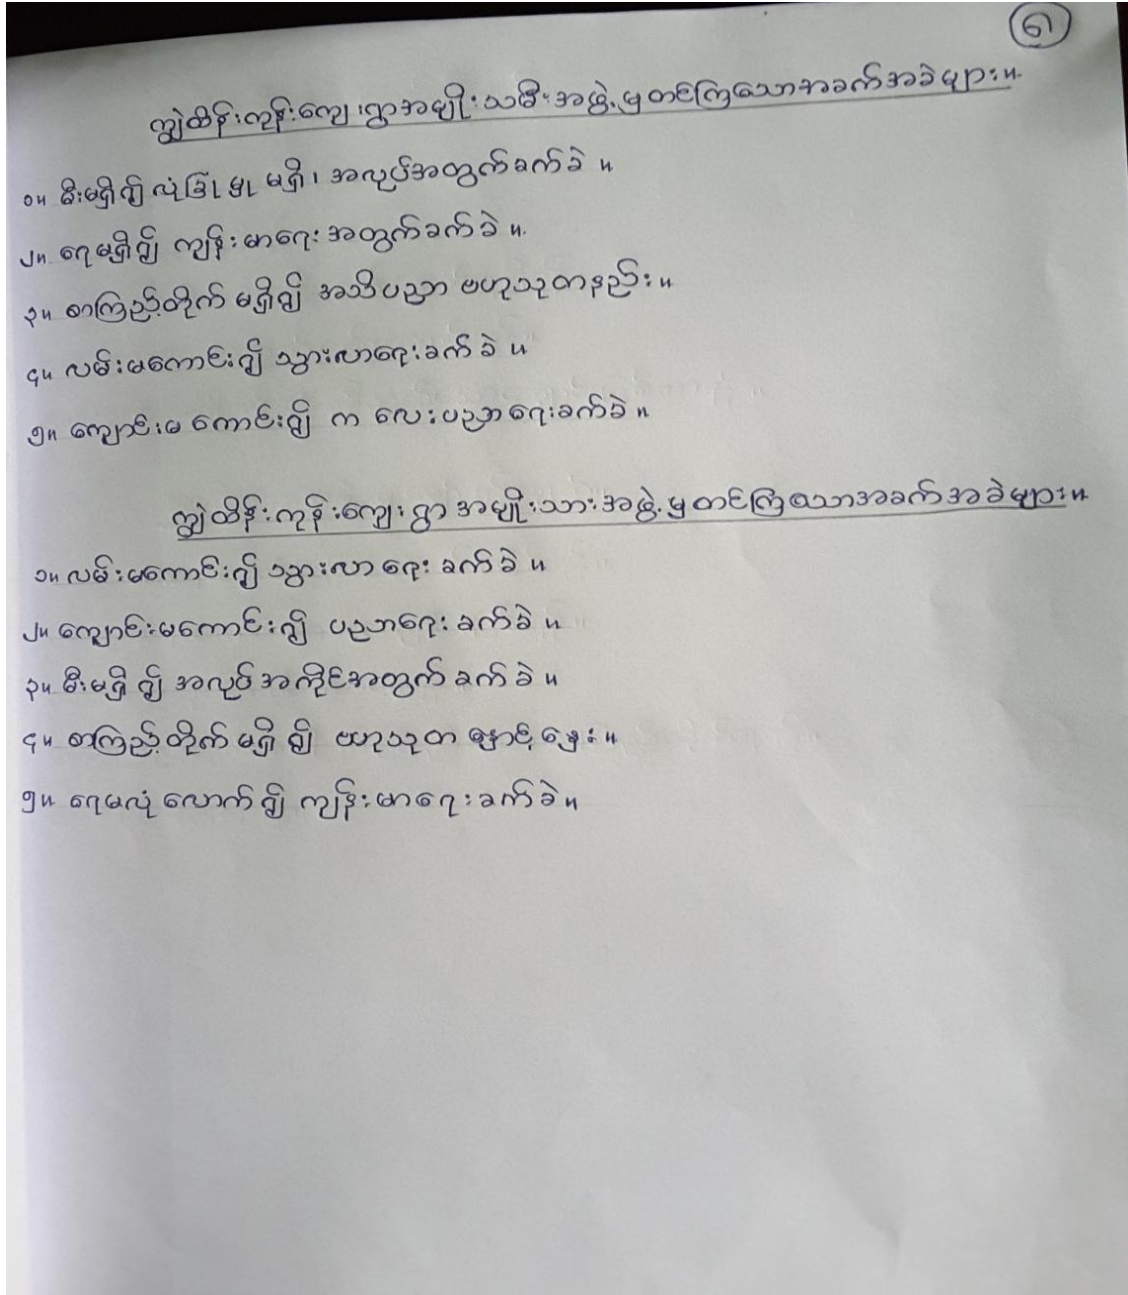 ၆
ကျွဲထိန်းကုန်းကျေးရွာအမျိုးသမီးအဖွဲ့မှတင်ကြသောအခက်အခဲများ။
၁။ မီးမရှိ၍ လုံခြုံမှု မရှိ၊ အလုပ်အတွက်ခက်ခဲ။
၂။ ရေမရှိ၍ ကျန်းမာရေးအတွက်ခက်ခဲ။
၃။ စာကြည့်တိုက် မရှိ၍ အသိပညာ ဗဟုသုတနည်း။
၄။ လမ်းမကောင်း၍ သွားလာရေးခက်ခဲ။
၅။ ကျောင်းမကောင်း၍ ကလေးပညာရေးခက်ခဲ။
ကျွဲထိန်းကုန်းကျေးရွာ အမျိုးသားအဖွဲ့မှတင်ကြသောအခက်အခဲများ။
၁။ လမ်းမကောင်း၍ သွားလာရေး ခက်ခဲ။
၂။ ကျောင်းမကောင်း၍ ပညာရေး ခက်ခဲ။
၃။ မီးမရှိ၍ အလုပ်အကိုင်အတွက် ခက်ခဲ။
၄။ စာကြည့်တိုက် မရှိ၍ ဗဟုသုတ နှောင့်နှေး။
၅။ ရေမလုံလောက်၍ ကျန်းမာရေးခက်ခဲ။